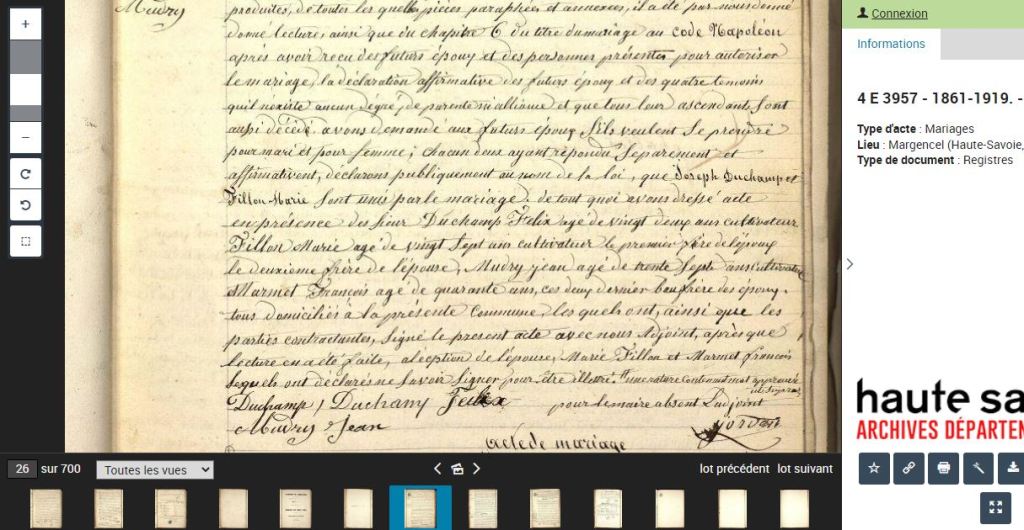 +
−
Mudry
produites, de toutes les quelles pièces paraphées et annexées, il a été par nous donné
donné lecture, ainsi que du chapitre 6 du titre du mariage au code Napoléon
après avoir reçu des futurs époux et des personnes présentes pour autoriser
le mariage, la déclaration affirmative des futurs époux et des quatre témoins
qu'il n'existe aucun degré, de parenté ni alliance et que tous leur ascendants sont
aussi décédé. avons demandé aux futurs époux s'ils veulent se prendre
pour mari et pour femme; chacun deux ayant répondu séparement et
affirmativent, déclarons publiquement au nom de la loi, que Joseph Duchamp et
Fillon Marie sont unis par le mariage. de tout quoi avons dressé acte
en présence des sieur Duchamp Felix agé de vingt deux ans cultivateur
Fillon Marie agé de vingt sept ans cultivateur le premier frère de l'époux
le deuxième frère de l'épouse, Mudry jean agé de trente sept ans cultivateur
Marmet François agé de quarante ans, ces deux dernier beau frère des époux.
tous domiciliés à la présente commune, les quels ont, ainsi que les
parties contractantes, signé le present acte avec nous Adjoint, après que
lecture en a été faite, à l'éception de l'épouse, Marie Fillon et Marmet françois
lesquels ont déclarés ne savoir signer pour être illetré. une nature contenant mot approuvée
Duchamp J Duchamp Felix pour le maire absent L'adjoint
Mudry Jean Jordan
acte de mariage
26 sur 700
Toutes les vues
lot précédent lot suivant
Connexion
Informations
4 E 3957 - 1861-1919. -
Type d'acte : Mariages
Lieu : Margencel (Haute-Savoie,
Type de document : Registres
haute sa
ARCHIVES DÉPARTEN